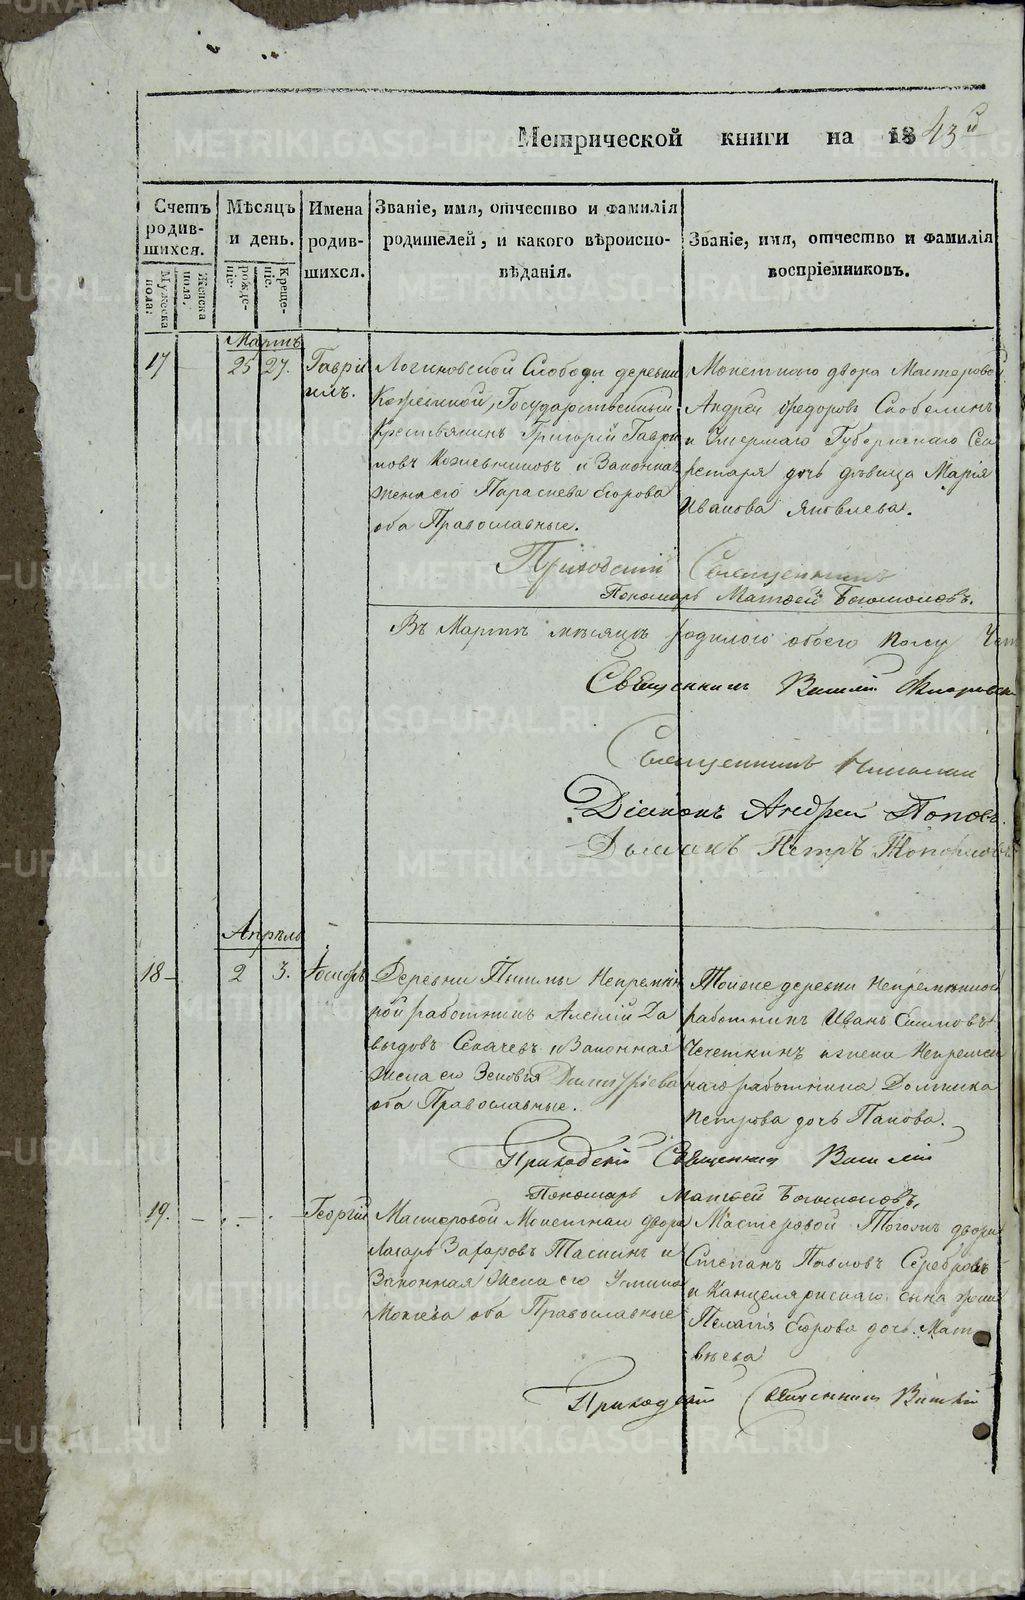 Метрической книги на 1843й
Счетъ родив-шихся.
Мужеска пола.
Женска пола.
Мѣсяцъ и день.
рожде-ніе.
Креще-ніе.
Имена родив-шихся.
Званіе, имя, отчество и фамилія родителей, и какого вѣроиспо-вѣданія.
Званіе, имя, отчество и фамилія воспріемниковъ.
Мартъ
17 25 27. Гаврі
илъ.
Логиновской Слободы деревни
Государственный
Крестьянинъ Григорій Гаври
ловъ Кожевниковъ и Законная
жена его Параскева Егорова
оба Православные.
Монетнаго двора Мастеровой
Андрей Федоровъ Скобелинъ
и Умершаго Губернскаго Сек
ретаря дочь дѣвица Марія
Иванова Яковлева.
Приходскій Священникъ
Пономарь Матѳей Богомоловъ.
Въ Мартѣ мѣсяцѣ родилось обоего полу
Священникъ Василій
Священникъ Николай
Діаконъ Андрей Поповъ.
Дьячекъ Петръ Топорковъ
Апрѣль
18 2 3. Іосифъ
Деревни Пышмы Непремѣн
ной работникъ Алексій Да
выдовъ Секачевъ и Законная
жена его Зеновія Димитріева
оба Православные.
Тойже деревни Непремѣнной
работникъ Иванъ Ефимовъ
Чечеткинъ и жена Непремѣн
наго работника
Петрова дочь Панова.
Приходскій Священникъ Василій
Пономарь Матѳей Богомоловъ.
19. Георгій
Мастеровой Монетнаго двора
Лазарь Захаровъ Таскинъ и
Законная жена его Устинья
Мокѣева оба Православные
Мастеровой Тогожъ двора
Степанъ Павловъ Серебряковъ
и Канцелярскаго сына жена
Пелагія Егорова дочь Мат
вѣева
Приходскій Священникъ Василій
METRIKI.GASO-URAL.RU